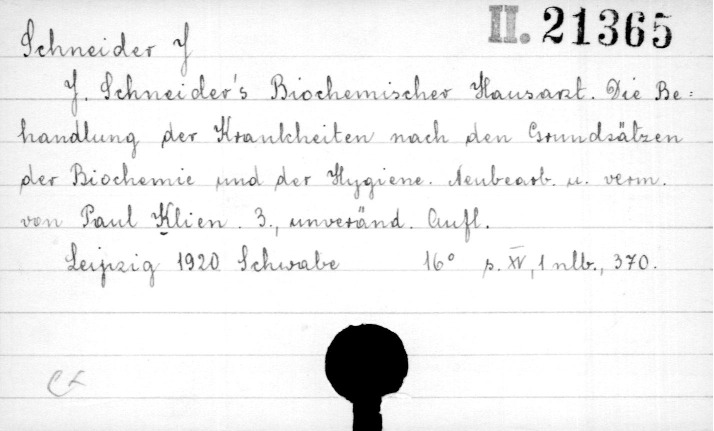 II. 21365
Schneider J
J. Schneider's Biochemischer Hausarzt. Die Be=
handlung der Krankheiten nach den Grundsätzen
der Biochemie und der Hygiene. Neubearb. u. verm.
von Paul Klien. 3., unveränd. Aufl.
Leipzig 1920 Schwabe 16° p. XV, 1 nlb., 370.